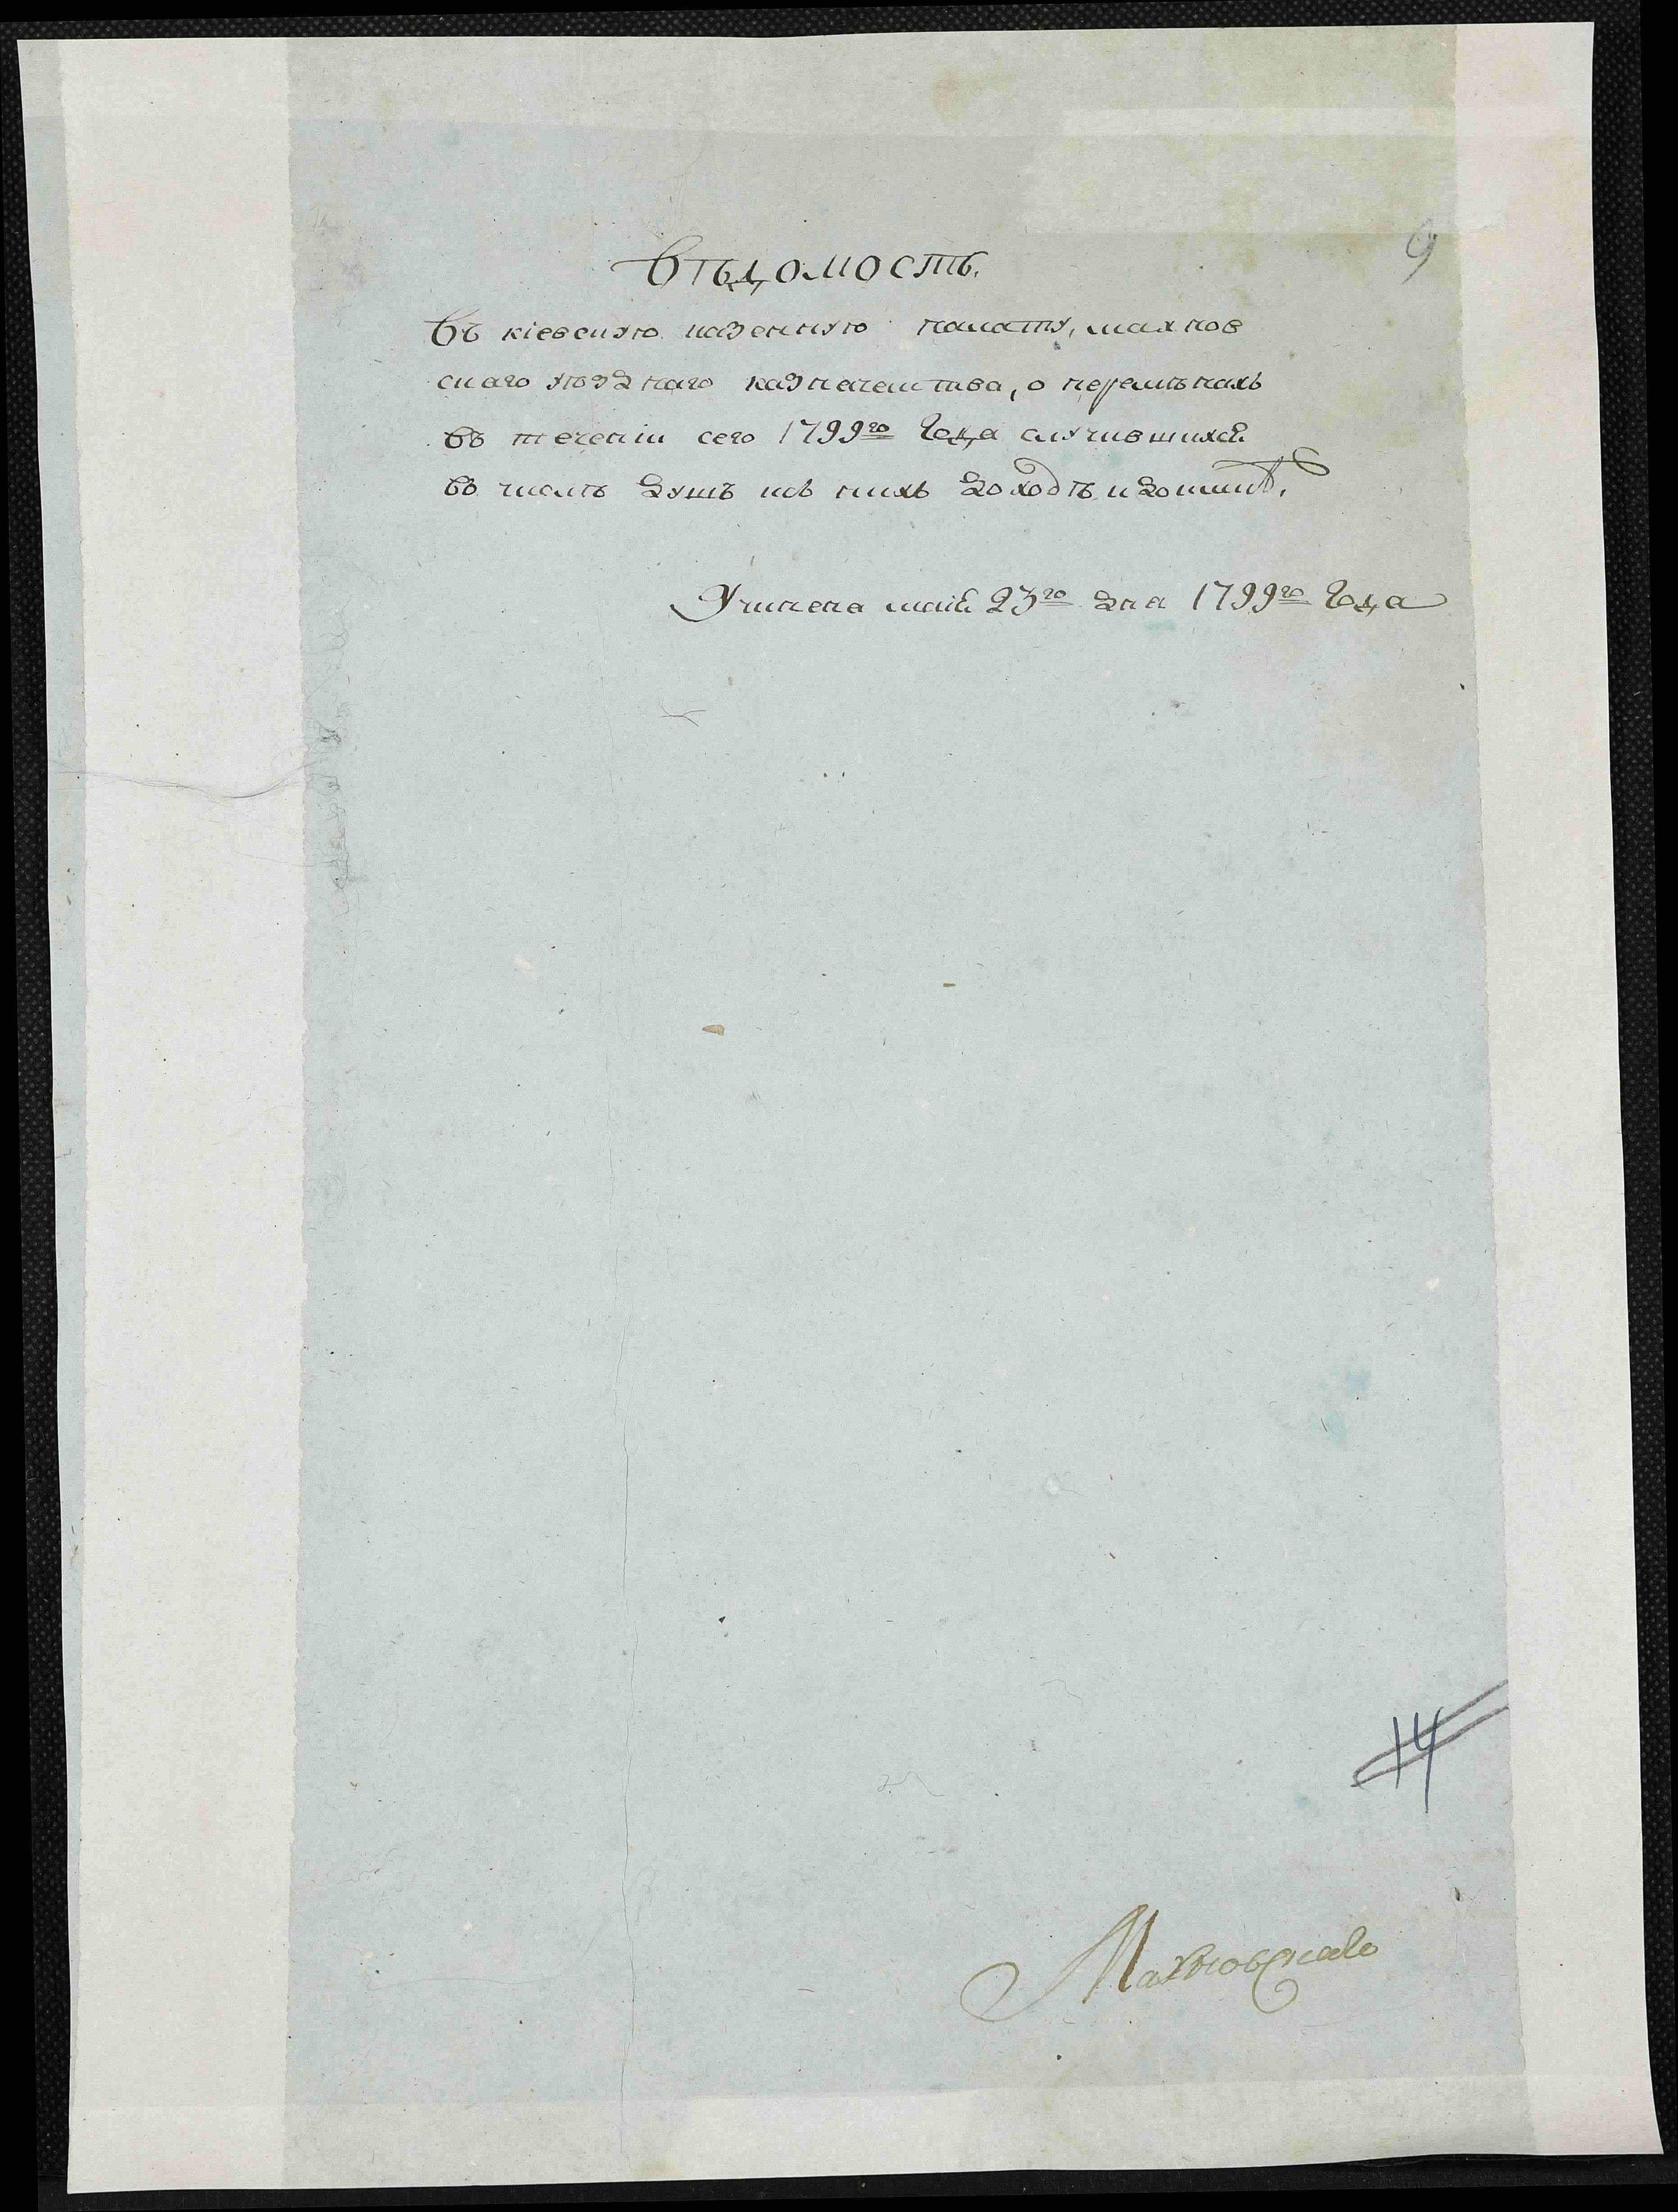 9
Вѣдомость.
Въ кіевскую казенную палату, махнов
скаго уѣзднаго казначеиства, о перемѣнахъ
въ теченіи сего 1799го Года случившихся
въ числѣ душъ исъ нихъ доходѣ и
Учинена маія 23го дня 1799го Года
14
Махновскаго